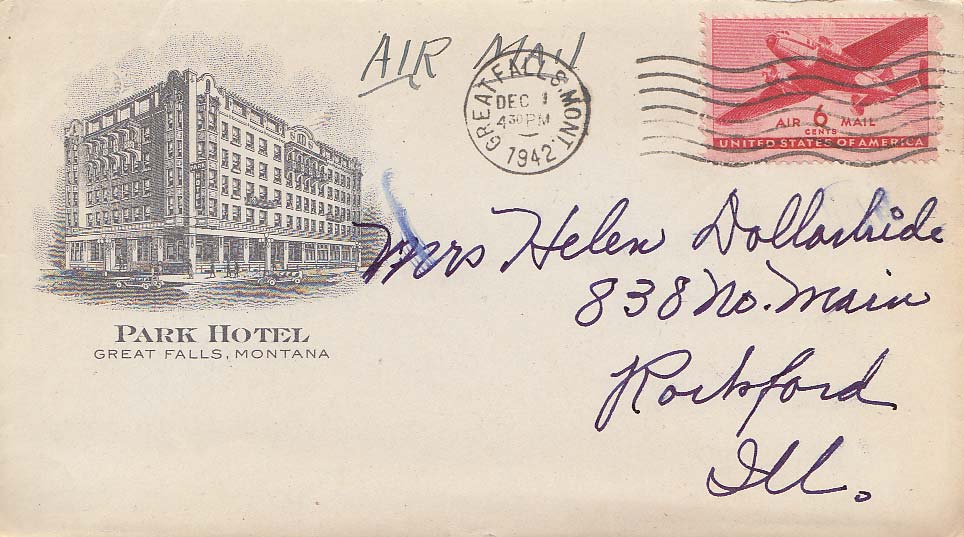 AIR MAIL
GREAT FALLS, MONT.
DEC 1
4 30 PM
1942
6
CENTS
AIR MAIL
UNITED STATES OF AMERICA
PARK HOTEL
GREAT FALLS, MONTANA
Mrs Helen Dollarhide
838 No. Main
Rockford
Ill.